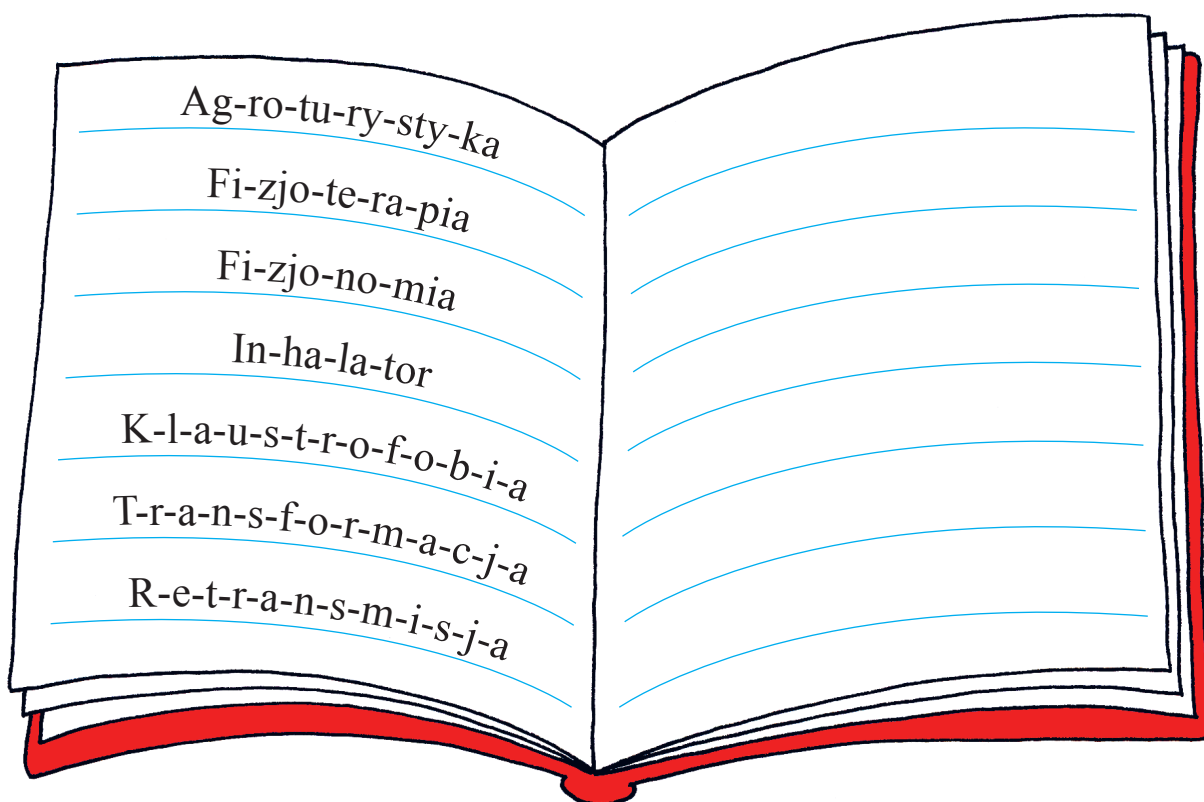 Ag-ro-tu-ry-sty-ka
Fi-zjo-te-ra-pia
Fi-zjo-no-mia
In-ha-la-tor
K-l-a-u-s-t-r-o-f-o-b-i-a
T-r-a-n-s-f-o-r-m-a-c-j-a
R-e-t-r-a-n-s-m-i-s-j-a